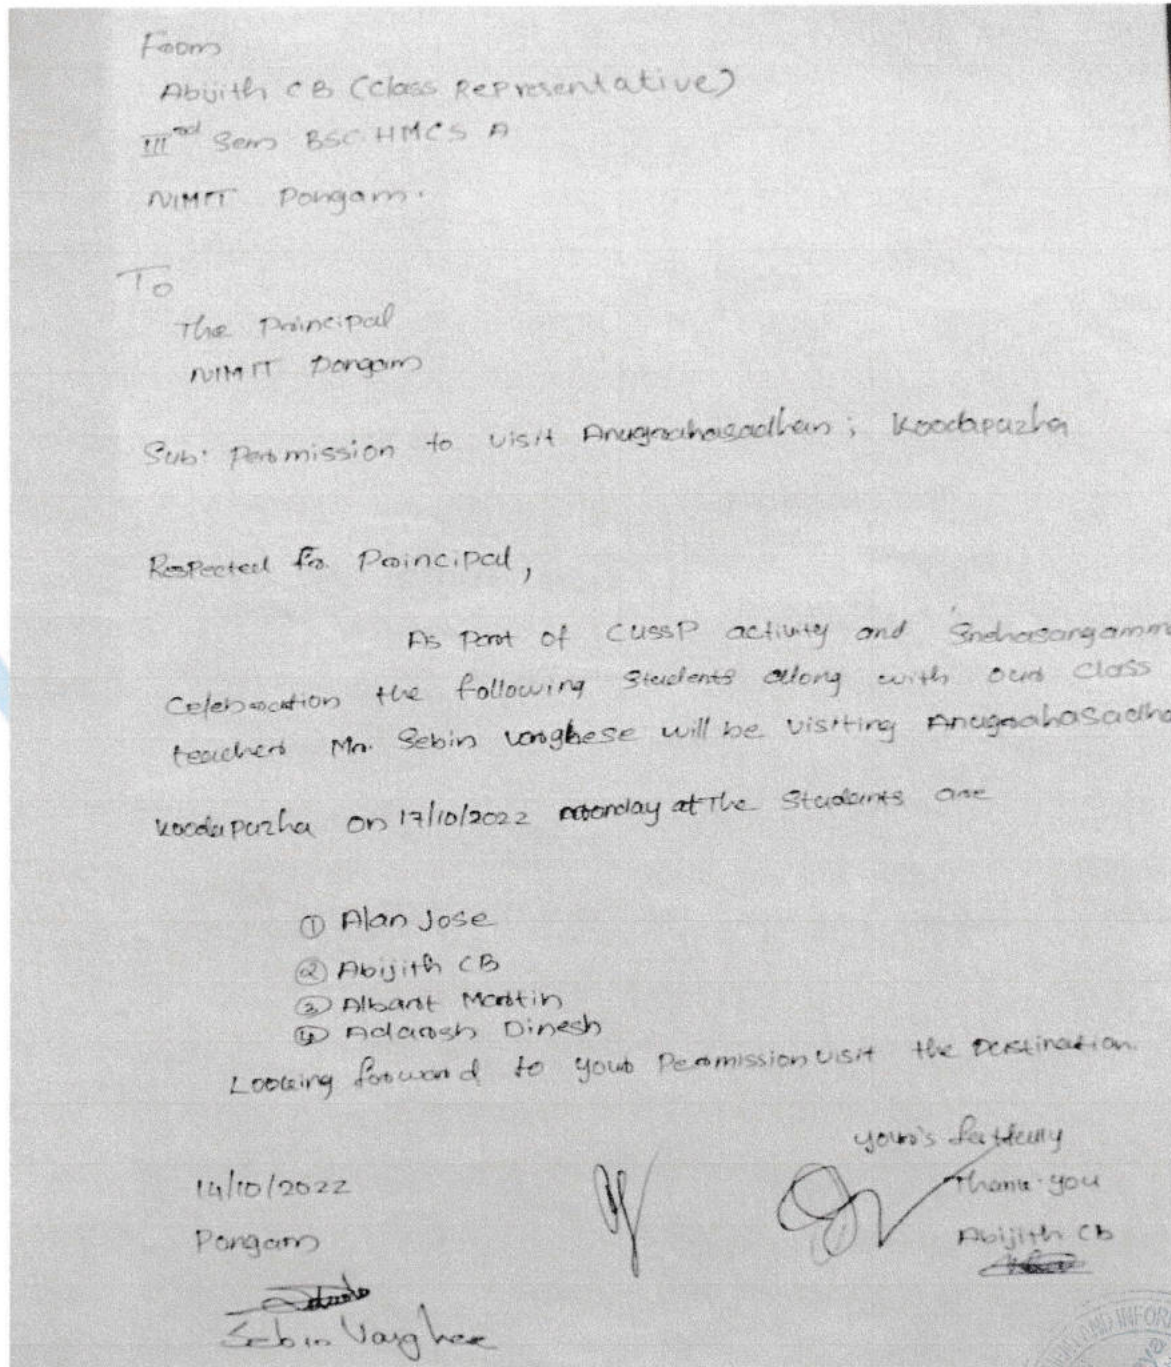 From
Abijith CB (Class Representative)
III rd Sem BSC HMCS A
NIMIT Pongam.
To
The Principal
NIMIT Pongam
Sub: Permission to visit Anugrahasadhan; Koodapuzha
Respected Fr. Principal,
As Part of CUSSP activity and Snehasangamm
Celebration the following Students along with our Class
teacher Mr. Sebin Varghese will be visiting Anugrahasadha
Koodapuzha on 17/10/2022 monday at The Students are
① Alan Jose
② Abijith CB
③ Albart Martin
④ Adarsh Dinesh
Looking forward to your Permission visit the Destination.
your's faithfully
14/10/2022 Thank you
Pongam Abijith CB
Sebin Varghese
AND INFOR